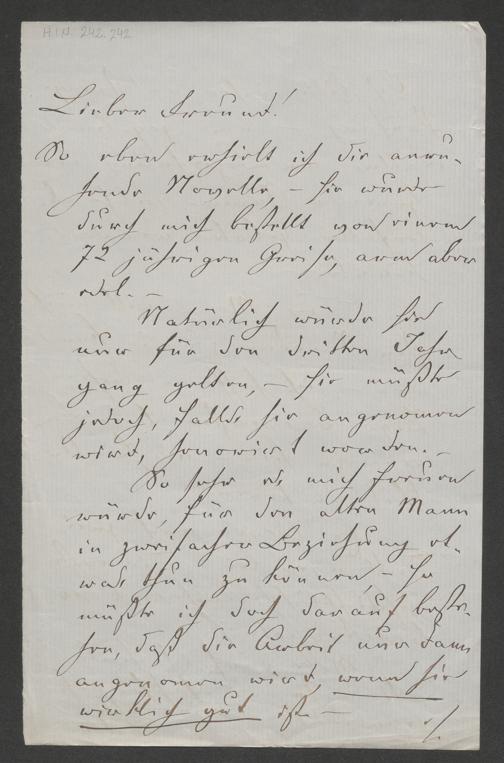 H.I.N. 242.242
Lieber Freund!
So eben erhielt ich die anru-
hende Novelle, – sie wurde
durch mich bestellt von einem
72 jährigen Greise, arm aber
edel. –
Natürlich würde sie
nur für den dritten Jahr
gang gelten, – sie müßte
jedoch, falls sie angenomen
wird, honorirt werden. –
So sehr es mich freuen
würde, für den alten Mann
in zweifacher Beziehung et-
was thun zu können, – so
müßte ich doch darauf beste-
hen, daß die Arbeit nur dann
angenomen wird, wenn sie
wirklich gut ist –
./.